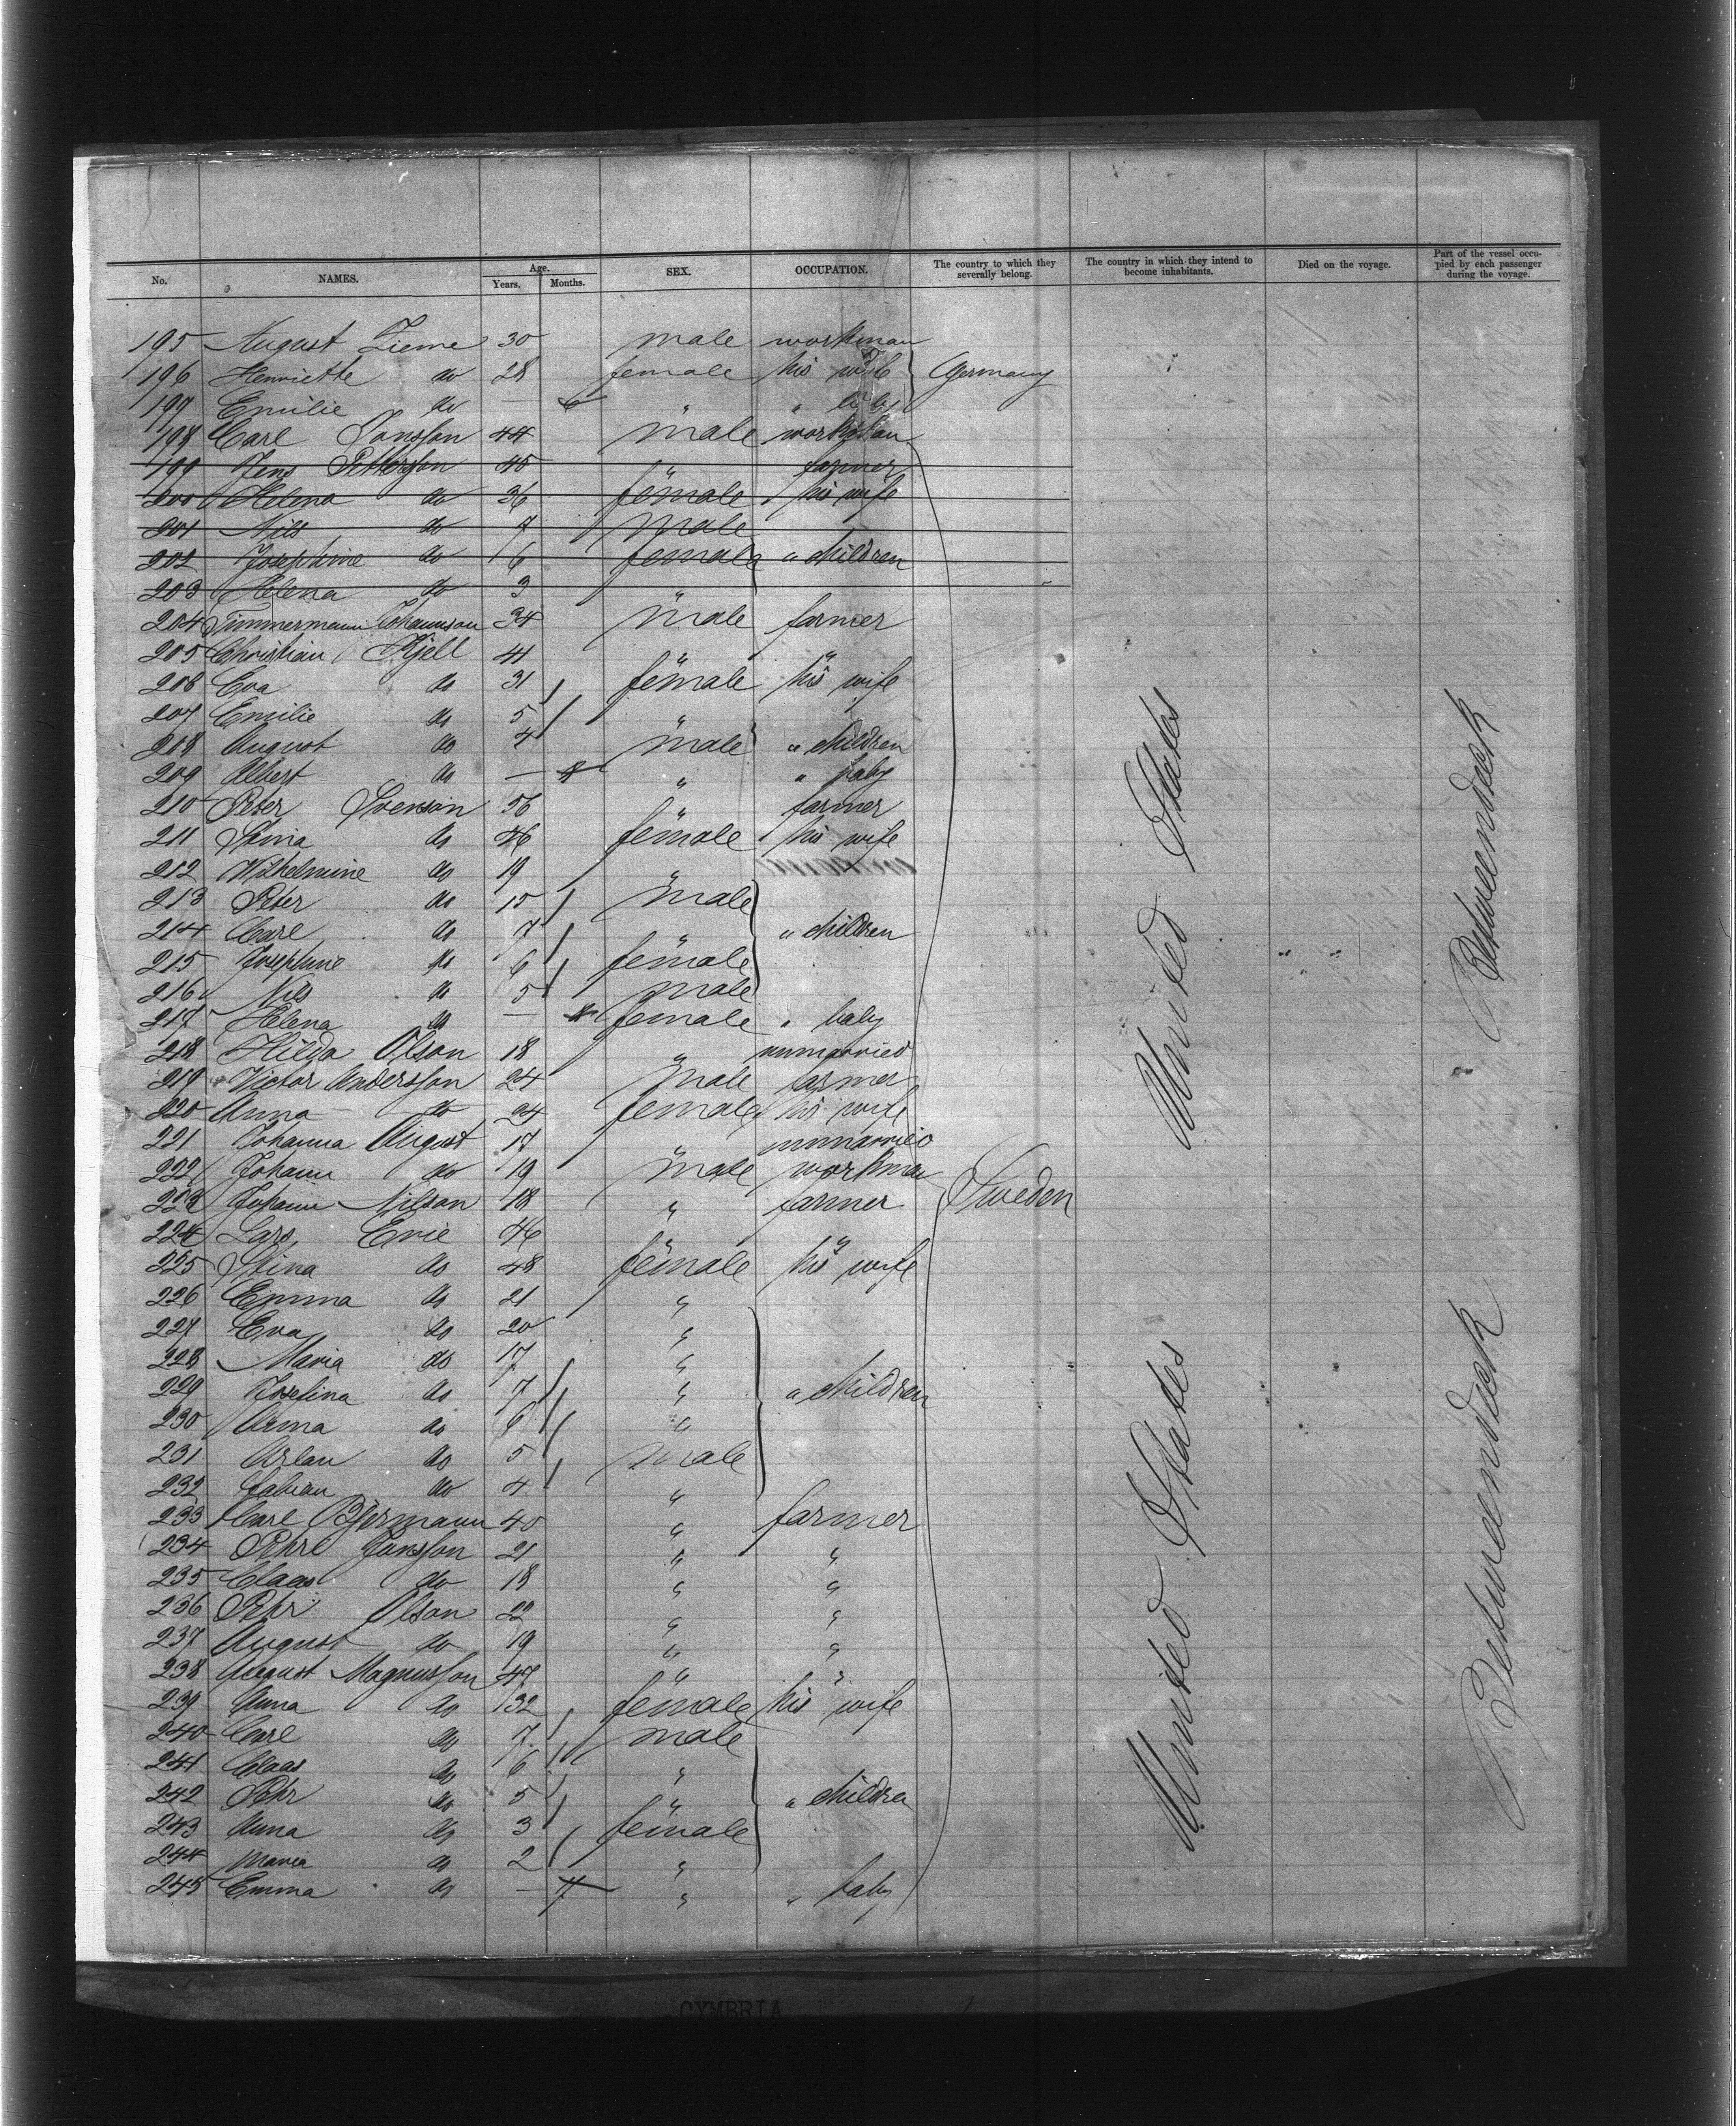 No. NAMES. Age. Years. Months. SEX. OCCUPATION. The country to which they severally belong. The country in which they intend to become inhabitants. Died on the voyage. Part of the vessel occupied by each passenger during the voyage.
195 August Zieme 30 male workman
196 Henriette do 28 female his wife Germany
197 Emilie do — 6 " " baby
198 Carl Jonsson 44 male workman
199 Jens Petterson 45 " farmer
200 Helena do 36 female his wife
201 Nils do 7 male
202 Josephine do 6 female " children
203 Helena do 3 "
204 Timmermann Johannson 34 male farmer
205 Christian Kjell 41 " "
206 Eva do 31 female his wife
207 Emilie do 5 "
208 August do 4 male " children
209 Albert do — " " baby
210 Peter Svenson 56 " farmer
211 Stina do 46 female his wife
212 Wilhelmine do 19 "
213 Peter do 15 male
214 Carl do 7 " " children
215 Josephine do 6 female
216 Nils do 5 male
217 Helena do — female " baby
218 Hilda Olson 18 " unmarried
219 Victor Andersson 24 male farmer
220 Anna do 24 female his wife
221 Johanna August 17 " unmarried
222 Johann do 19 male workman
223 Johann Nilson 18 " farmer Sweden
224 Lars Erie 46 " "
225 Stina do 48 female his wife
226 Emma do 21 "
227 Eva do 20 "
228 Maria do 17 "
229 Josefina do 7 " " children
230 Anna do 6 "
231 Arlan do 5 male
232 Fabian do 4 "
233 Carl Bjormann 40 " farmer
234 Pehr Jonsson 21 " "
235 Claas do 18 " "
236 Pehr Olson 22 " "
237 August do 19 " "
238 August Magnusson 47 " "
239 Anna do 32 female his wife
240 Carl do 7 male
241 Claas do 6 "
242 Pehr do 5 " " children
243 Anna do 3 female
244 Maria do 2 "
245 Emma do — 7 " " baby
United States
United States
Betweendeck
Betweendeck
CYMBRIA